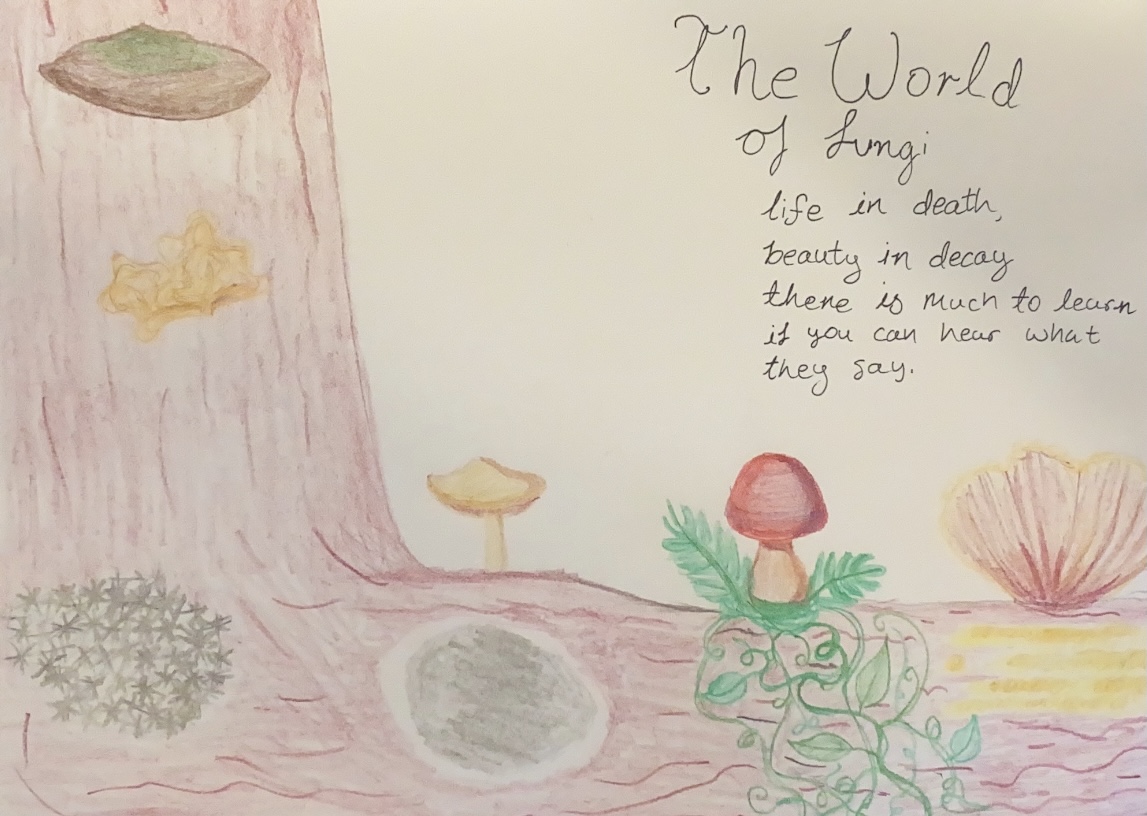 The World
of fungi
life in death,
beauty in decay
there is much to learn
if you can hear what
they say.